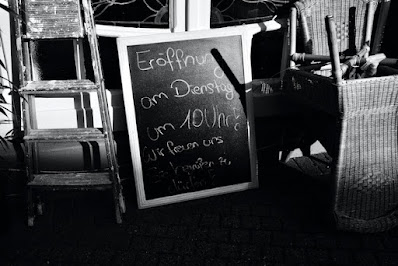 Eröffnung
am Dienstag
um 10 Uhr!
Wir freuen uns